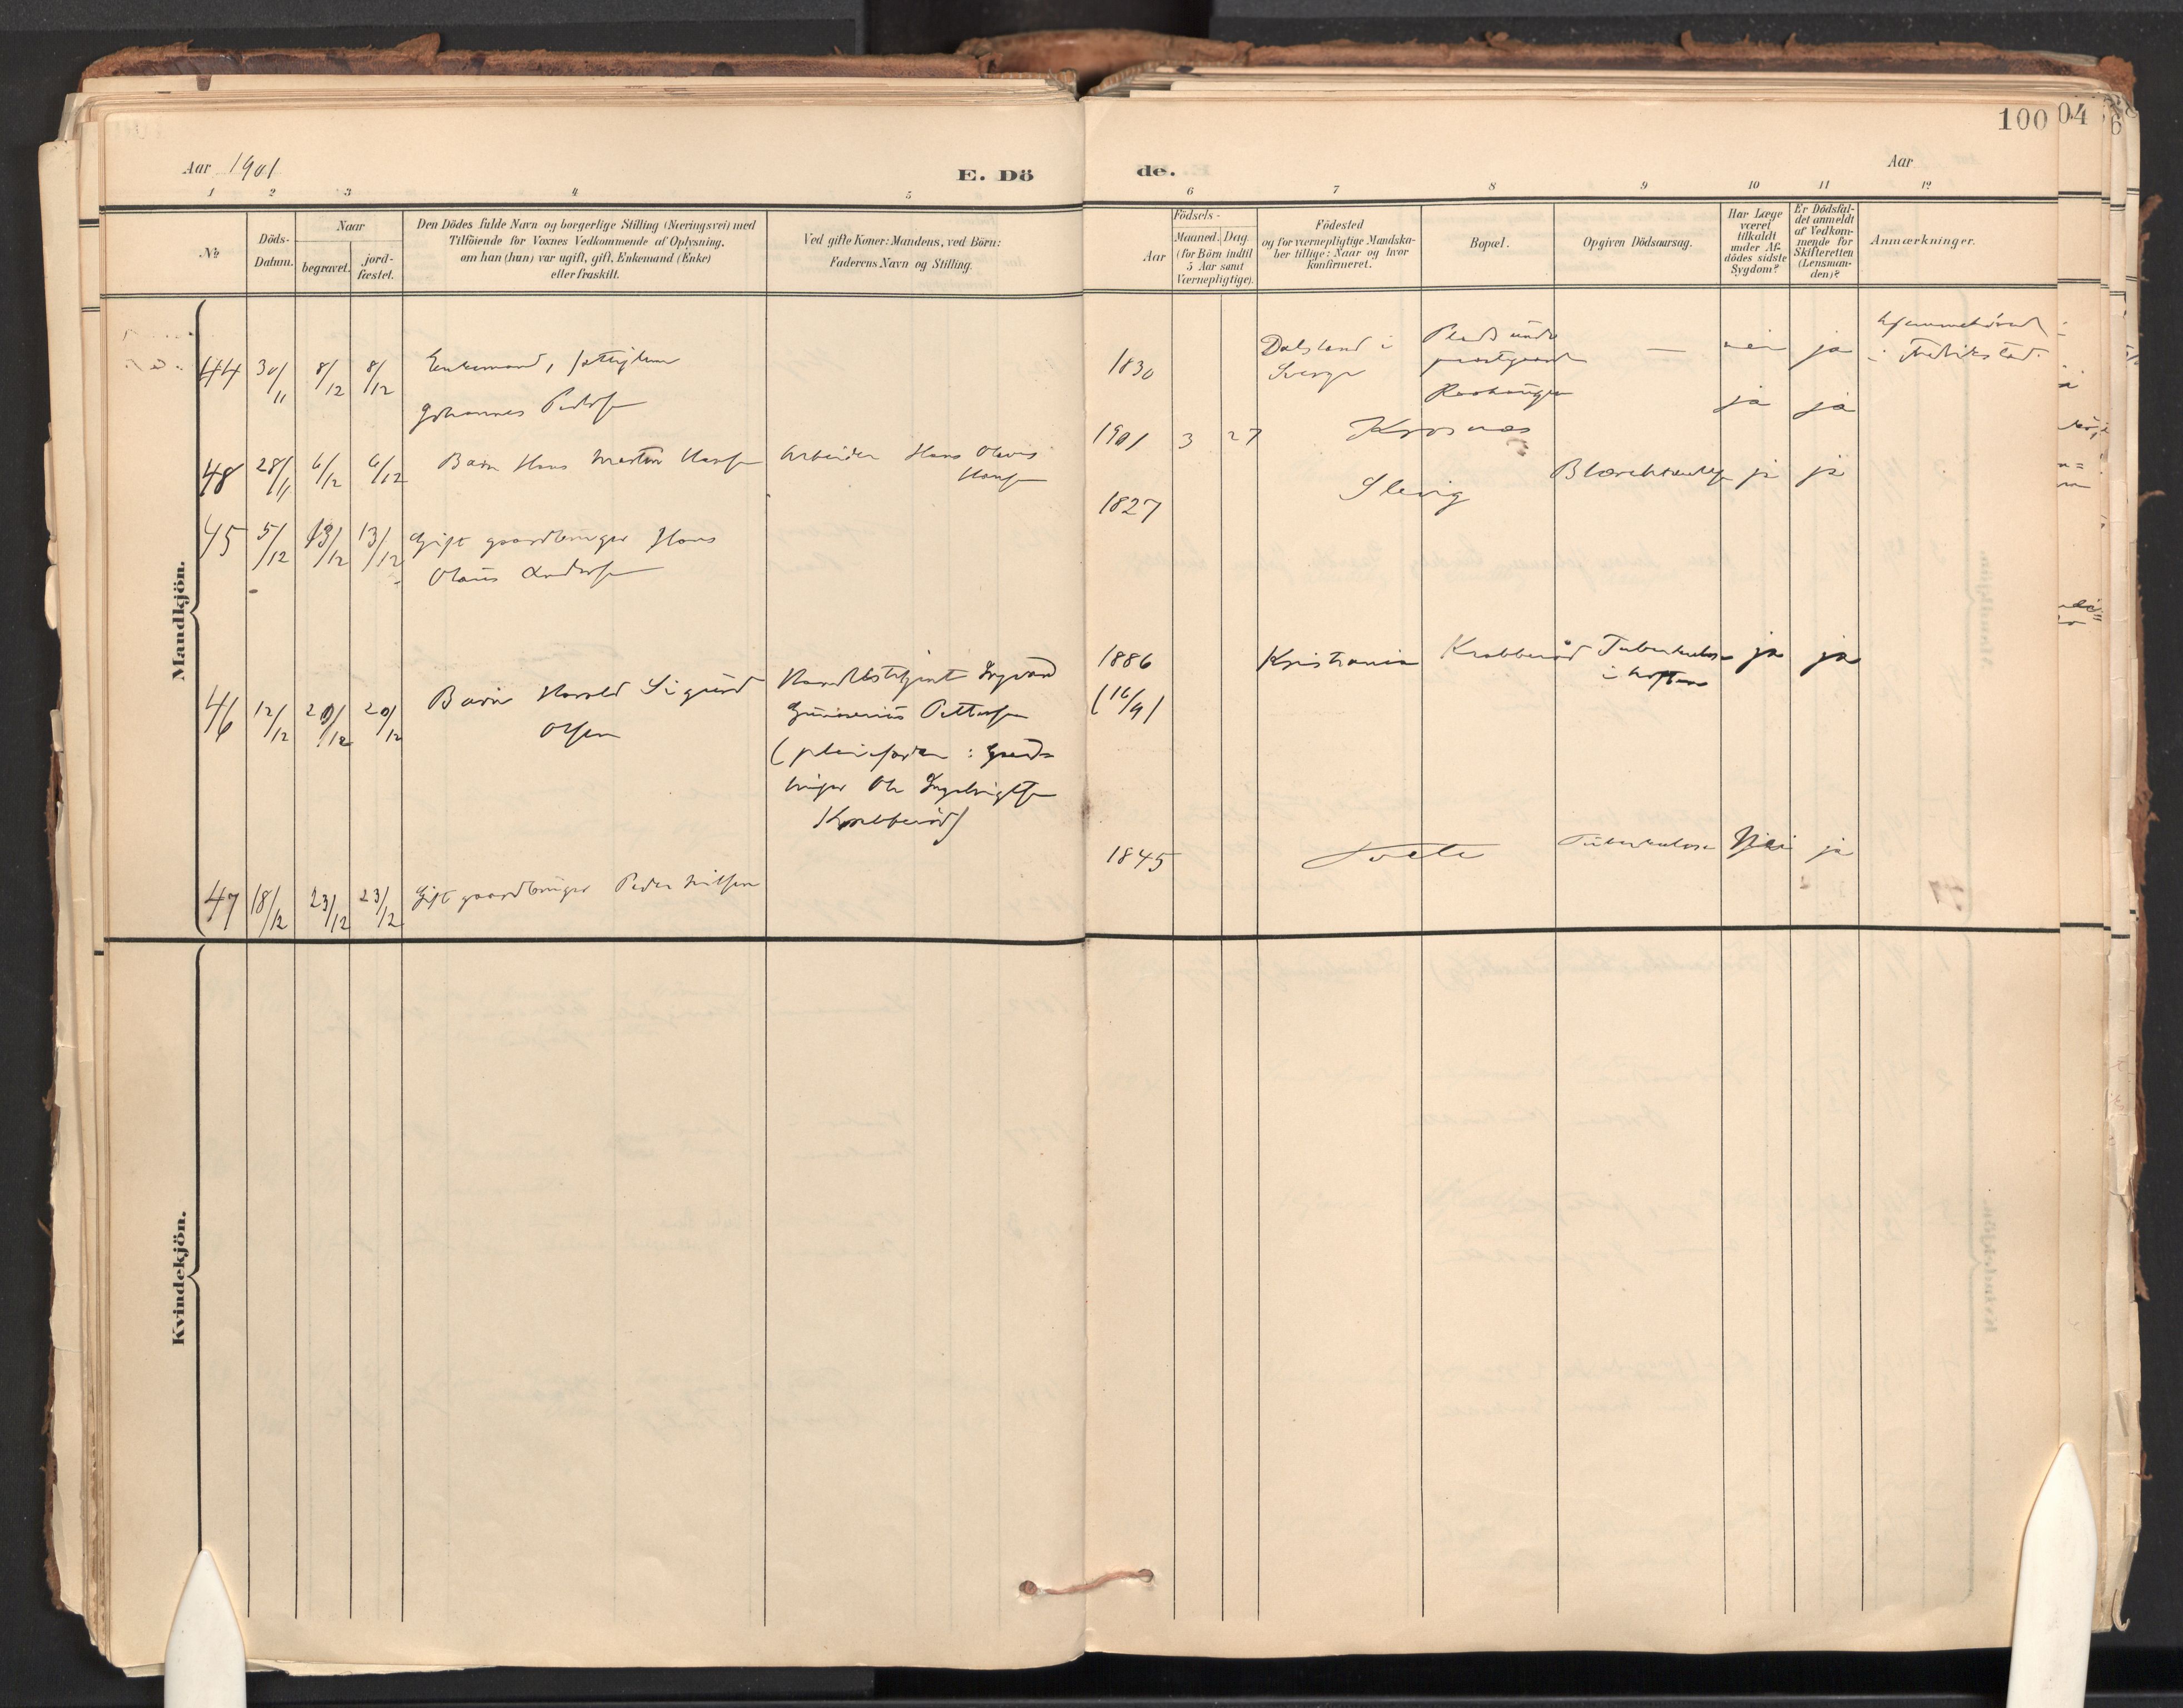 100
04
6
Aar 1901
E. Dö
de.
Aar
1 2 3 4 5
6 7 8 9 10 11 12
No
Döds-
Datum.
Naar
begravet.
jord-
fæstet.
Den Dödes fulde Navn og borgerlige Stilling (Næringsvei) med
Tilföiende for Voxnes Vedkommende af Oplysning,
om han (hun) var ugift, gift, Enkemand (Enke)
eller fraskilt.
Ved gifte Koner: Mandens, ved Börn:
Faderens Navn og Stilling.
Födsels-
Aar
Maaned. Dag.
(for Börn indtil
5 Aar samt
Værnepligtige).
Födested
og for værnepligtige Mandska-
ber tillige: Naar og hvor
konfirmeret.
Bopæl.
Opgiven Dödsaarsag.
Har Læge
været
tilkaldt
under Af-
dödes sidste
Sygdom?
Er Dödsfal-
det anmeldt
af Vedkom-
mende for
Skifteretten
(Lensman-
den)?
Anmærkninger.
Mandkjön.
44 30/11 8/12 8/12 Enkemand,
Johannes
1830 Dalsland i
Sverge
Plads under
—
nei ja
hjemmehörend
i Fredrikstad.
48 28/11 6/12 6/12 Barn Hans Martin Hansen Arbeider Hans Olavus
Hansen
1901 3 27 Krosnæs ja ja
45 5/12 13/12 13/12 Gift gaardbruger Hans
Olaus Andersen
1827 Slevig ja ja
46 12/12 20/12 20/12 Barn Harald Sigurd
Olsen
Ingvard
Gunnerius Pettersen
(pleiefader: Gaard-
bruger Ole Ingebrigtsen
Krabberöd)
1886
(16/9)
Kristiania Krabberöd Tuberkulose
i hoften
ja ja
47 18/12 23/12 23/12 Gift gaardbruger Peder Nilsen
1845 Tofte Tuberkulose Nei ja
Kvindekjön.